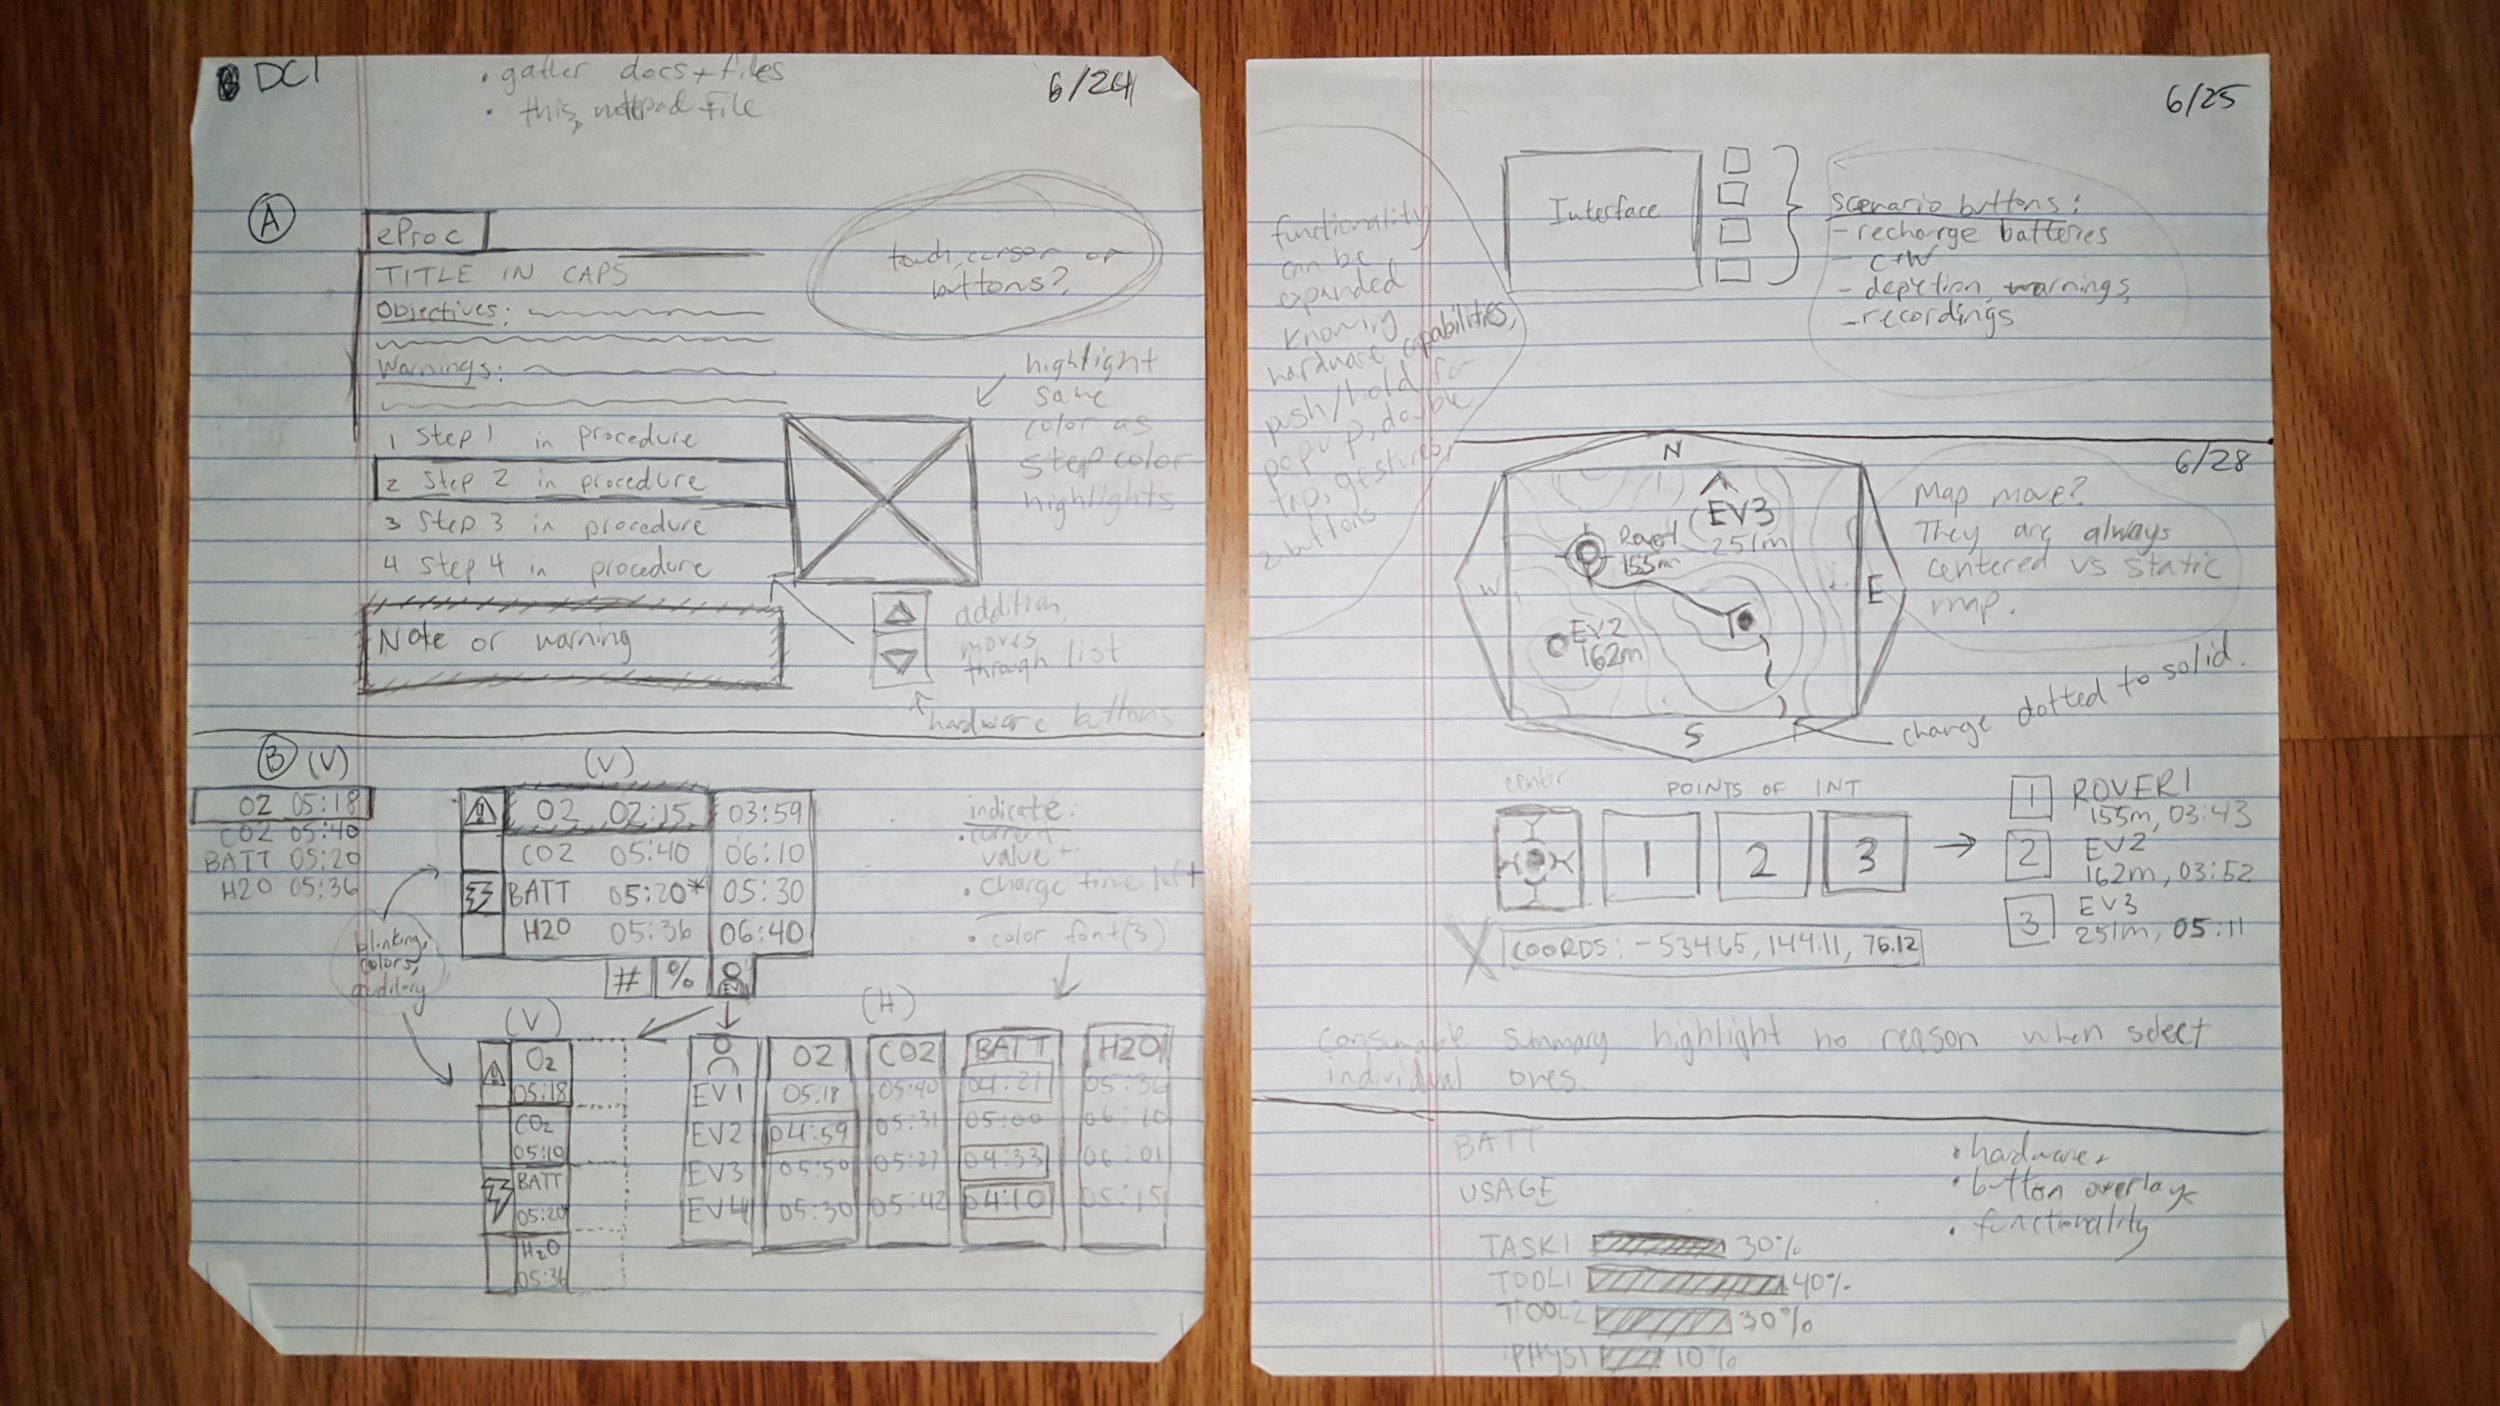 DCI
• gather docs + files
• this, notepad file
6/24
A
eProc
TITLE IN CAPS
Objectives:
Warnings:
1 Step 1 in procedure
2 Step 2 in procedure
3 Step 3 in procedure
4 Step 4 in procedure
Note or warning
touch, cursor or
buttons?
highlight
same
color as
step color
highlights
addition,
moves
through list
hardware buttons
B (V)
O2 05:18
CO2 05:40
BATT 05:20
H2O 05:36
blinking,
colors,
auditory
(V)
O2 02:15 03:59
CO2 05:40 06:10
BATT 05:20* 05:30
H2O 05:36 06:40
# %
indicate:
• current
value +
• charge time left
• color font (3)
(V)
O2
05:18
CO2
05:10
BATT
05:20*
H2O
05:36
(H)
O2 CO2 BATT H2O
EV1 05:18 05:40 04:21 05:36
EV2 04:59 05:31 05:00 06:10
EV3 05:50 05:27 04:33 06:01
EV4 05:30 05:42 04:10 05:15
6/25
Interface
scenario buttons:
- recharge batteries
- C+W
- depletion warnings,
- recordings
functionality
can be
expanded
knowing
hardware capabilities,
push/hold for
popup, double
tap, gestures,
2 buttons
6/28
N
W
E
S
Rover1
155m
EV3
251m
EV2
162m
Map move?
They are always
centered vs static
map.
change dotted to solid.
center
POINTS OF INT
1 2 3
1 ROVER1
155m, 03:43
2 EV2
162m, 03:52
3 EV3
251m, 05:11
X COORDS: -534.65, 144.11, 76.12
Consumable summary highlight no reason when select
individual ones.
BATT
USAGE
TASK1 30%
TOOL1 40%
TOOL2 30%
PHYS1 10%
• hardware +
• button overlays
• functionality